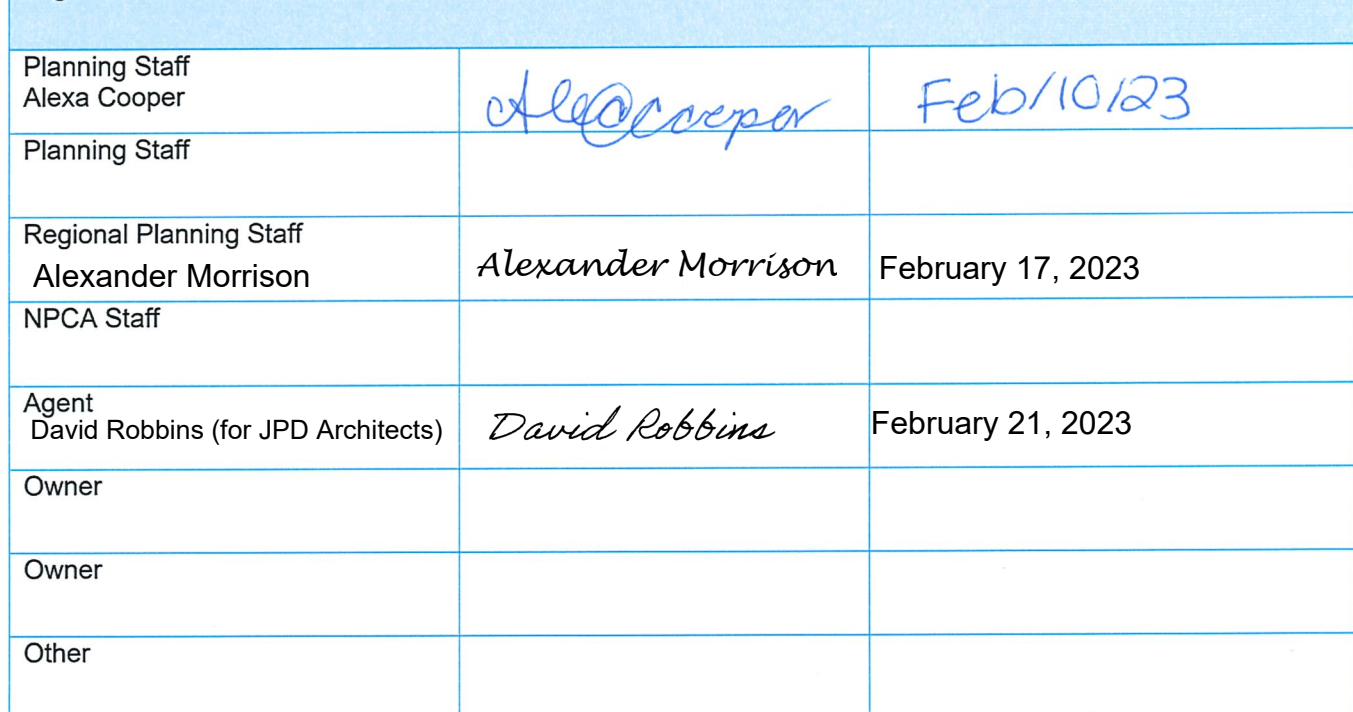 Planning Staff
Alexa Cooper
Alexa Cooper
Feb/10/23
Planning Staff
Regional Planning Staff
Alexander Morrison
Alexander Morrison
February 17, 2023
NPCA Staff
Agent
David Robbins (for JPD Architects)
David Robbins
February 21, 2023
Owner
Owner
Other